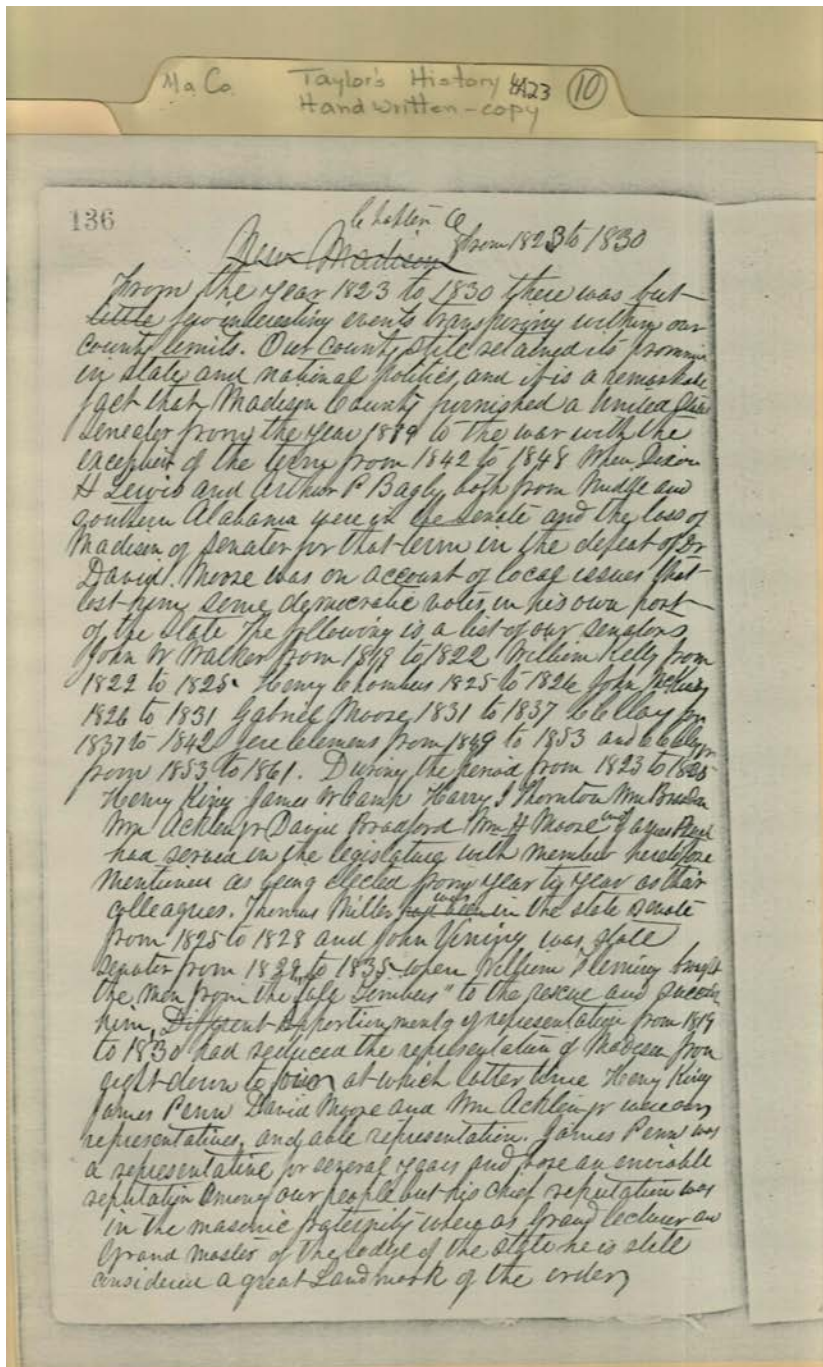 Ma Co Taylor's History 4A23 10
Handwritten-copy
136
Chapter 6
New Madison from 1823 to 1830
From the year 1823 to 1830 there was but
little few interesting events transpiring within our
county limits. Our county still retained its
in state and national politics and it is a remarkable
fact that Madison County furnished a United States
Seneater from the year 1819 to the war with the
exception of the term from 1842 to 1848 When Dixon
H Lewis and Arthur P Bagly both from Middle and
southern Alabama were in the senate and the loss of
Madison of senater for that term in the defeat of Dr
David Moore was on account of local issues that
lost him some democratic votes in his own part
of the state The following is a list of our senators
John W Walker from 1819 to 1822 William Kelly from
1822 to 1825. Henry Chambers 1825 to 1826 John McKinly
1826 to 1831 Gabriel Moore 1831 to 1837 C C Clay from
1837 to 1842 Jere Clemens from 1849 to 1853 and C C Clay jr
from 1853 to 1861. During the period from 1823 to 1825
Henry King James W Camp Harry I Thornton Wm
Wm Acklen jr David Bradford Wm H Moore and James Penn
had served in the legislature with member heretofore
mentioned as being elected from year to year as their
colleagues. Thomas Miller was in the state senate
from 1825 to 1828 and John Vining was state
senater from 1829 to 1835 when William Fleming brought
the men from the "tall Timbers" to the rescue and succeeded
him. Different Apportionments of representation from 1819
to 1830 had reduced the representation of Madison from
eight down to four at which latter time Henry King
James Penn David Moore and Wm Acklen jr were our
representatives, and able representation. James Penn was
a representative for several years and bore an enviable
reputation among our people but his chief reputation was
in the masonic fraternity where as Grand lecturer and
Grand Master of the lodge of the state he is still
considered a great Landmark of the order